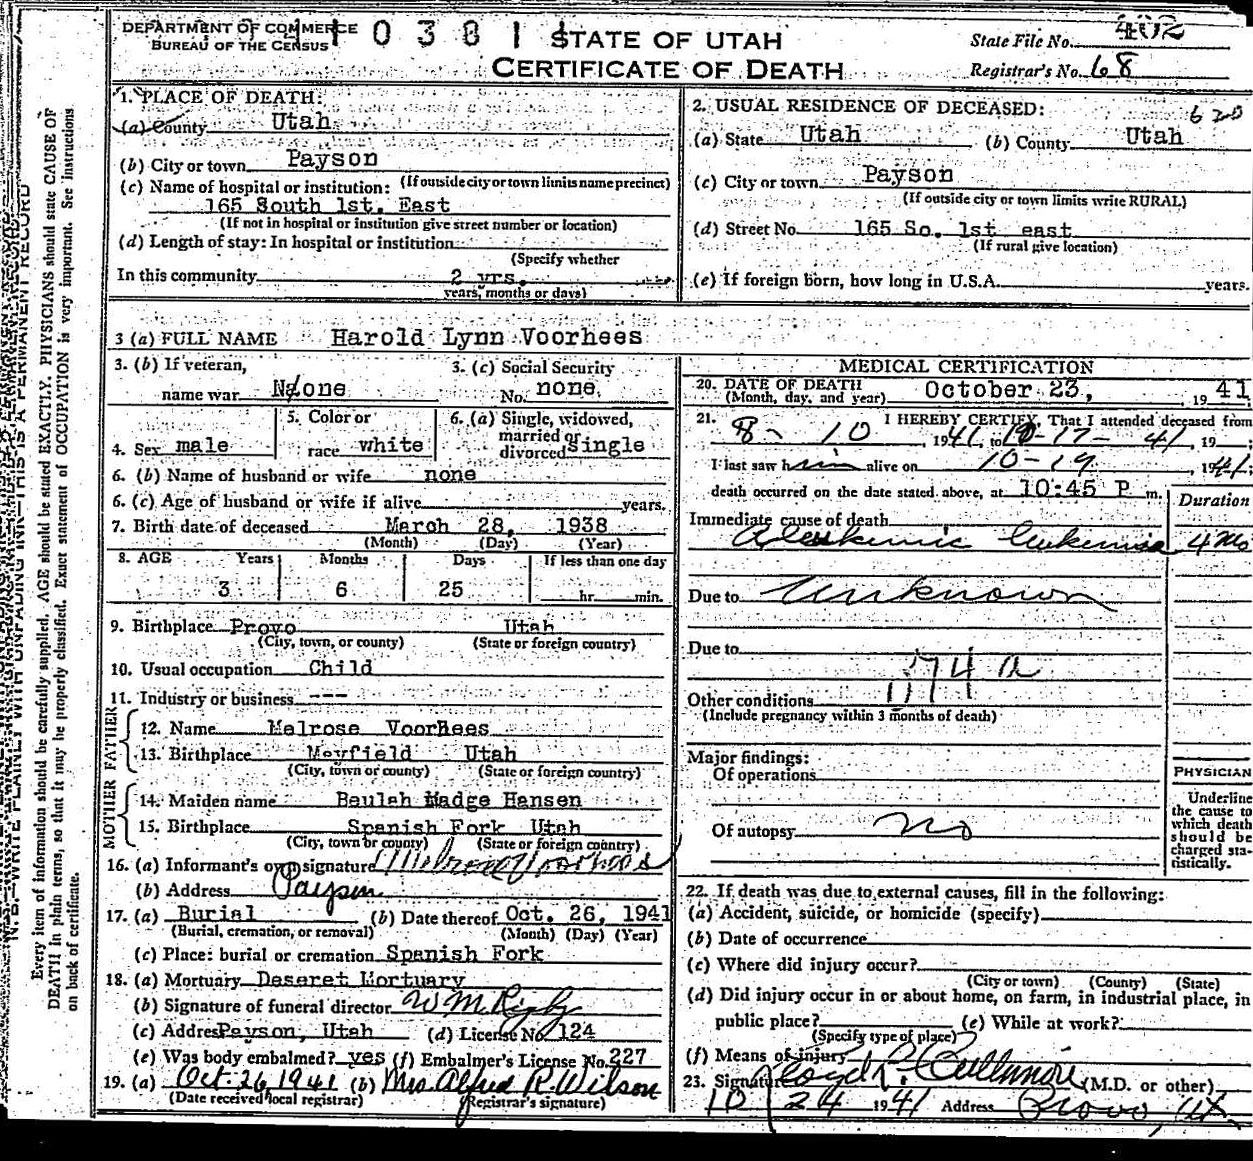 DEPARTMENT OF COMMERCE
BUREAU OF THE CENSUS
STATE OF UTAH
CERTIFICATE OF DEATH
State File No. 402
Registrar's No. 68
1. PLACE OF DEATH:
(a) County Utah
(b) City or town Payson
(If outside city or town limits name precinct)
(c) Name of hospital or institution:
165 South 1st. East
(If not in hospital or institution give street number or location)
(d) Length of stay: In hospital or institution
(Specify whether
In this community 2 yrs.
years, months or days)
2. USUAL RESIDENCE OF DECEASED: 620
(a) State Utah (b) County Utah
(c) City or town Payson
(If outside city or town limits write RURAL)
(d) Street No. 165 So. 1st east
(If rural give location)
(e) If foreign born, how long in U.S.A. years.
3 (a) FULL NAME Harold Lynn Voorhees
3. (b) If veteran, name war None
3. (c) Social Security No. none
4. Sex male
5. Color or race white
6. (a) Single, widowed, married or divorced Single
6. (b) Name of husband or wife none
6. (c) Age of husband or wife if alive years.
7. Birth date of deceased March 28, 1938
(Month) (Day) (Year)
8. AGE Years Months Days If less than one day
3 6 25 hr. min.
9. Birthplace Provo Utah
(City, town, or county) (State or foreign country)
10. Usual occupation Child
11. Industry or business ---
FATHER
12. Name Melrose Voorhees
13. Birthplace Mayfield Utah
(City, town or county) (State or foreign country)
MOTHER
14. Maiden name Beulah Madge Hansen
15. Birthplace Spanish Fork Utah
(City, town or county) (State or foreign country)
16. (a) Informant's own signature Melrose Voorhees
(b) Address Payson
17. (a) Burial (b) Date thereof Oct. 26, 1941
(Burial, cremation, or removal) (Month) (Day) (Year)
(c) Place: burial or cremation Spanish Fork
18. (a) Mortuary Deseret Mortuary
(b) Signature of funeral director W M Rigby
(c) Address Payson, Utah (d) License No. 124
(e) Was body embalmed? yes (f) Embalmer's License No. 227
19. (a) Oct. 26, 1941 (b) Mrs. Alfred R. Wilson
(Date received local registrar) (Registrar's signature)
MEDICAL CERTIFICATION
20. DATE OF DEATH October 23, 1941
(Month, day, and year)
21. I HEREBY CERTIFY, That I attended deceased from
8-10 1941, to 10-17-41, 19
I last saw him alive on 10-19, 1941;
death occurred on the date stated above, at 10:45 P m.
Duration
Immediate cause of death
Aleukemic leukemia 4 Mo
Due to Unknown
Due to
74 a
Other conditions
(Include pregnancy within 3 months of death)
Major findings:
Of operations
Of autopsy no
PHYSICIAN
Underline
the cause to
which death
should be
charged sta-
tistically.
22. If death was due to external causes, fill in the following:
(a) Accident, suicide, or homicide (specify)
(b) Date of occurrence
(c) Where did injury occur?
(City or town) (County) (State)
(d) Did injury occur in or about home, on farm, in industrial place, in
public place? (e) While at work?
(Specify type of place)
(f) Means of injury
23. Signature Lloyd L. Cullimore (M.D. or other)
10/24 1941 Address Provo, Ut.
N.B.—WRITE PLAINLY WITH UNFADING INK—THIS IS A PERMANENT RECORD
Every item of information should be carefully supplied. AGE should be stated EXACTLY. PHYSICIANS should state CAUSE OF
DEATH in plain terms, so that it may be properly classified. Exact statement of OCCUPATION is very important. See Instructions
on back of certificate.